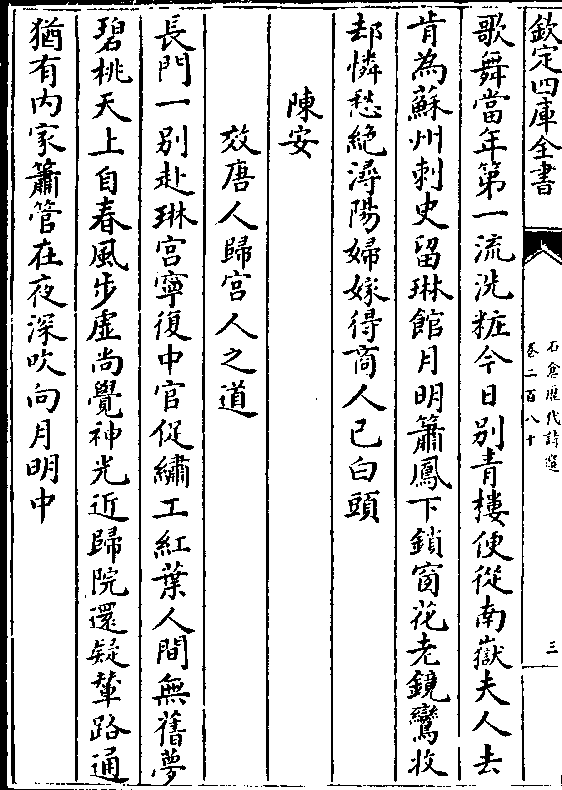 欽定四庫全書
石倉歷代詩選
卷二百八十
三
歌舞當年第一流洗粧今日別青樓便從南嶽夫人去
肯為蘇州刺史留琳館月明簫鳳下鎖窗花老鏡鸞收
却憐愁絶潯陽婦嫁得商人已白頭
陳安
效唐人歸宫人之道
長門一别赴琳宫寧復中官促繡工紅葉人間無舊夢
碧桃天上自春風步虛尚覺神光近歸院還疑輦路通
猶有内家簫管在夜深吹向月明中